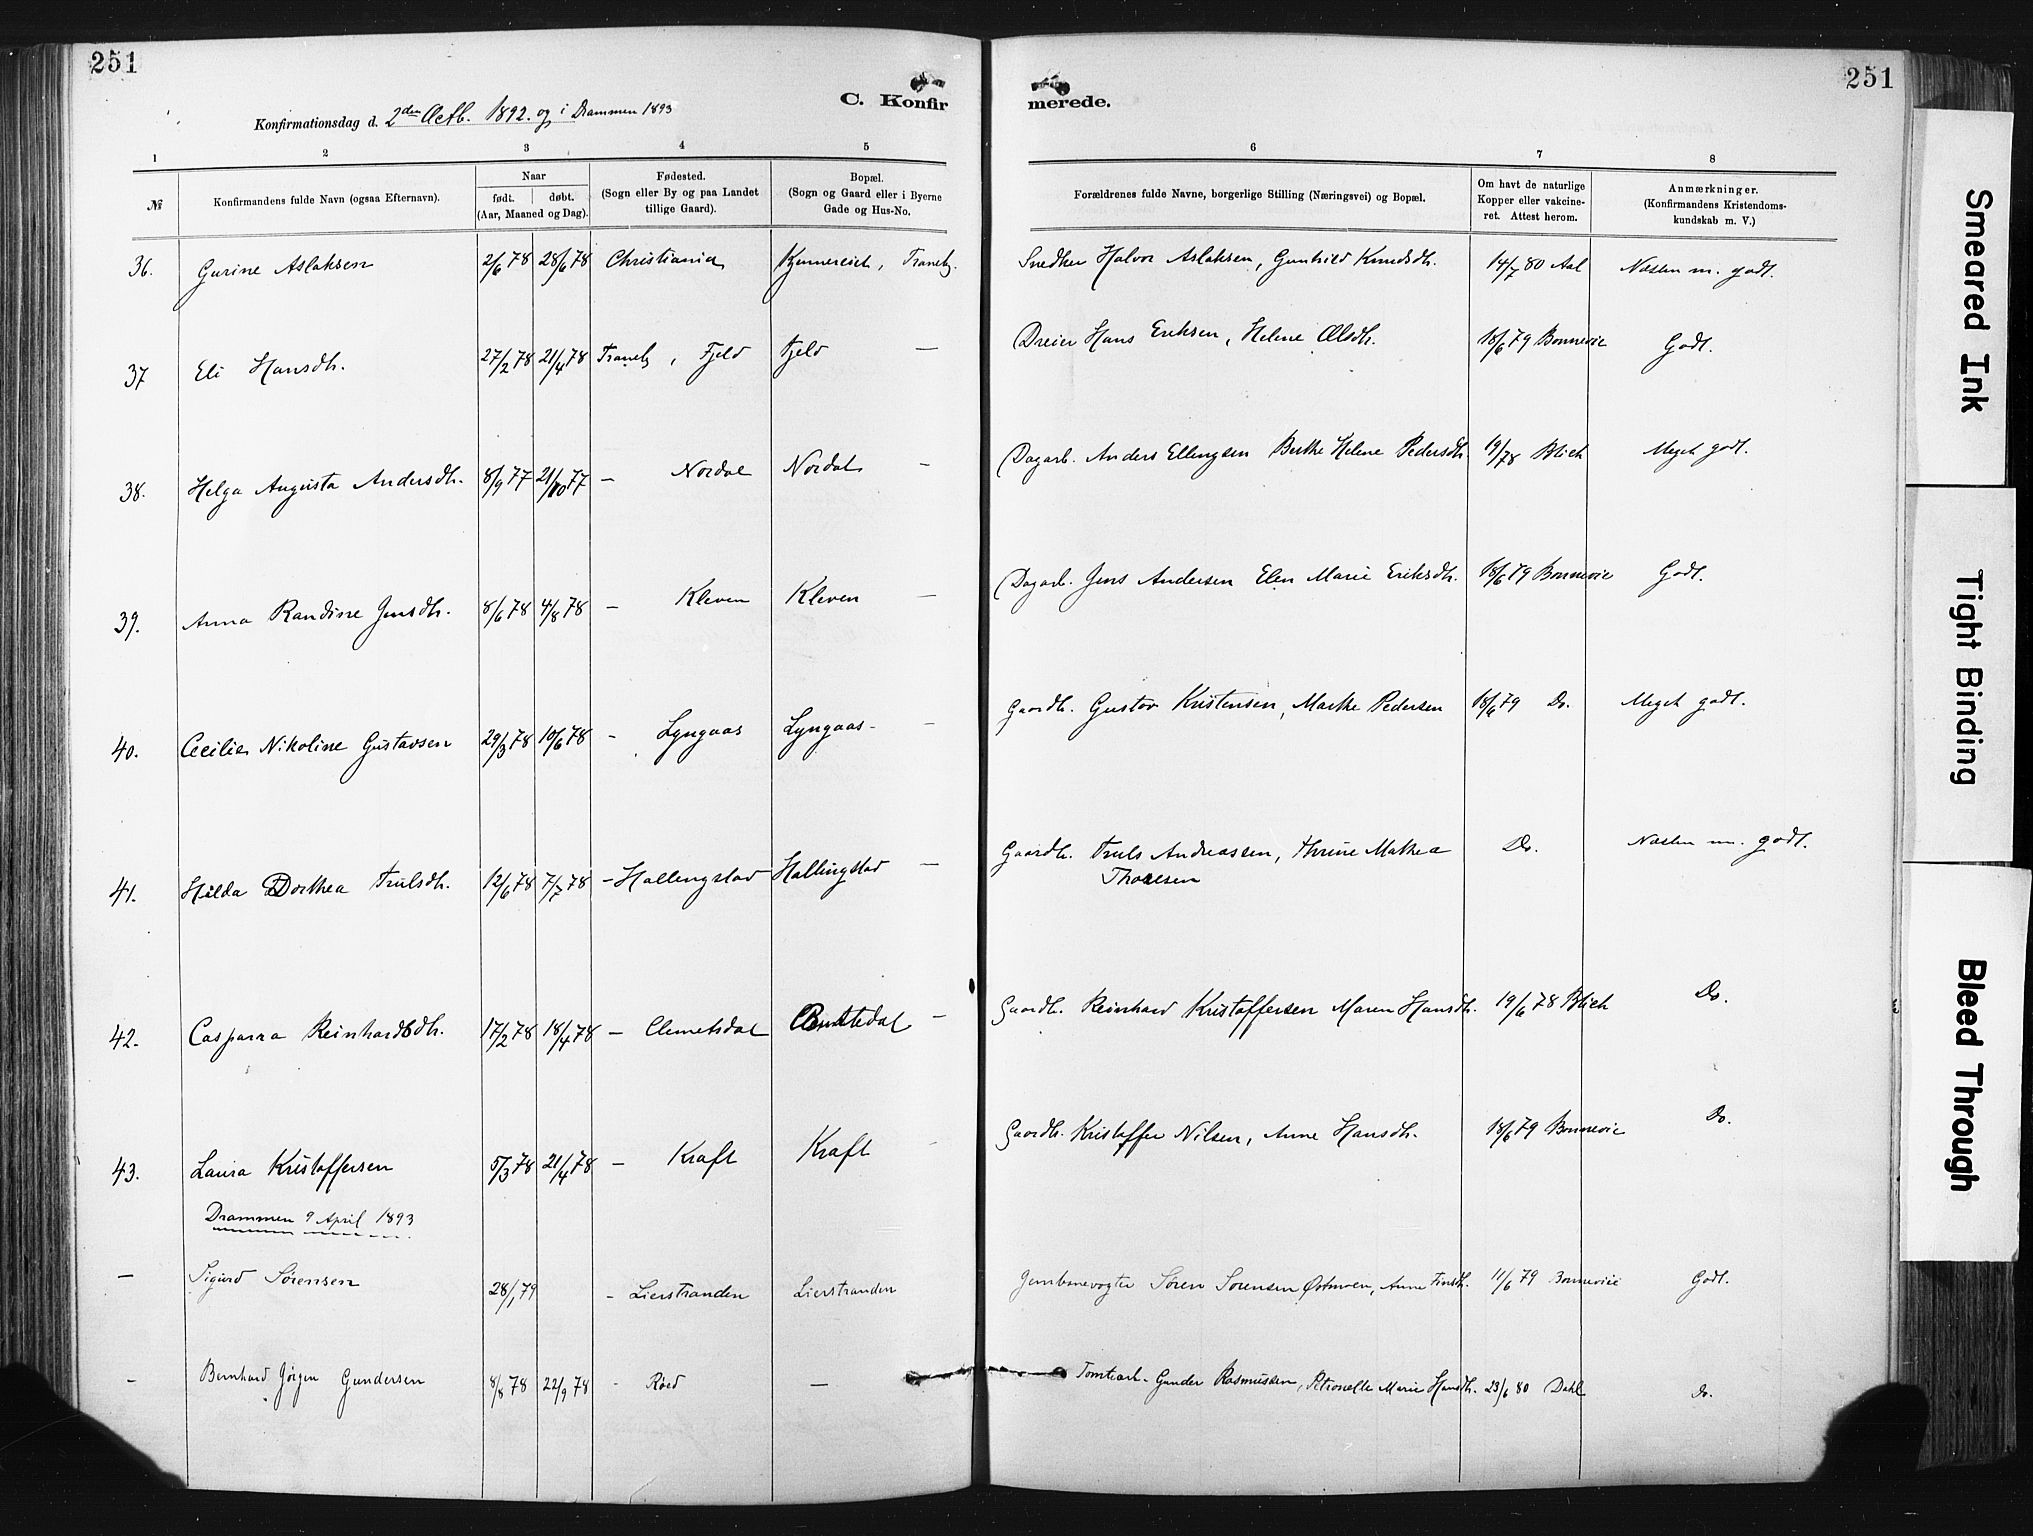 251
251
C. Konfir
merede.
Konfirmationsdag d. 2den Octb. 1892. og i Drammen 1893
1 2 3 4 5 6 7 8
№
Konfirmandens fulde Navn (ogsaa Efternavn).
Naar
født. døbt.
(Aar, Maaned og Dag).
Fødested.
(Sogn eller By og paa Landet
tillige Gaard).
Bopæl.
(Sogn og Gaard eller i Byerne
Gade og Hus-No.
Forældrenes fulde Navne, borgerlige Stilling (Næringsvei) og Bopæl.
Om havt de naturlige
Kopper eller vakcine-
ret. Attest herom.
Anmærkninger.
(Konfirmandens Kristendoms-
kundskab m. V.)
36. Gurine Aslaksen 2/6 78 28/6 78 Christiania Traneby. Snedker Halvor Aslaksen, Gunhild Knudsdtr. 14/7 80 Aal Næsten m. godt.
37 Eli Hansdtr. 27/2 78 21/4 78 Traneby, Fjeld Fjeld — Dreier Hans Eriksen, Helene Olsdtr. 18/6 79 Bonnevie Godt.
38. Helga Augusta Andersdtr. 8/9 77 21/10 77 — Nordal Nordal — Dagarb. Anders Ellingsen Berthe Helene Pedersdtr. 19/78 Blich Meget godt.
39. Anna Randine Jensdtr. 8/6 78 4/8 78 — Kleven Kleven — Dagarb. Jens Andersen Elen Marie Eriksdtr. 18/6 79 Bonnevie Godt.
40. Cecilie Nikoline Gustavsen 29/3 78 10/6 78 - Lyngaas Lyngaas - — Gaardbr. Gustav Kristensen, Marthe Pedersen 18/6 79 Do. Meget godt.
41. Hilda Dorthea Trulsdtr. 12/6 78 7/7 78 - Hallingstad Hallingstad — Gaardbr. Truls Andreassen, Thrine Mathea Do. Næsten m. godt.
Thoresen
42. Casparra Reinhardtsdtr. 17/2 78 18/4 78 — Clemetsdal Clemetsdal — Gaardbr. Reinhard Kristoffersen Maren Hansdtr. 19/6 78 Blich Do.
43. Laura Kristoffersen 5/3 78 21/4 78 — Kraft Kraft Gaardbr. Kristoffer Nilsen, Anne Hansdtr. 18/6 79 Bonnevie Do.
Drammen 9 April 1893
— Sigurd Sørensen 28/1 79 - Lierstranden Lierstranden Jernbanevogter Søren Sørensen Østmoen, Anne Finsdtr. 11/6 79 Bonnevie Godt.
- Bernhard Jørgen Gundersen 8/8 78 22/9 78 - Røed — Tomtearb. Gunder Rasmussen, Petronelle Marie Hansdtr. 23/6 80 Dahl Do.
Smeared Ink
Tight Binding
Bleed Through